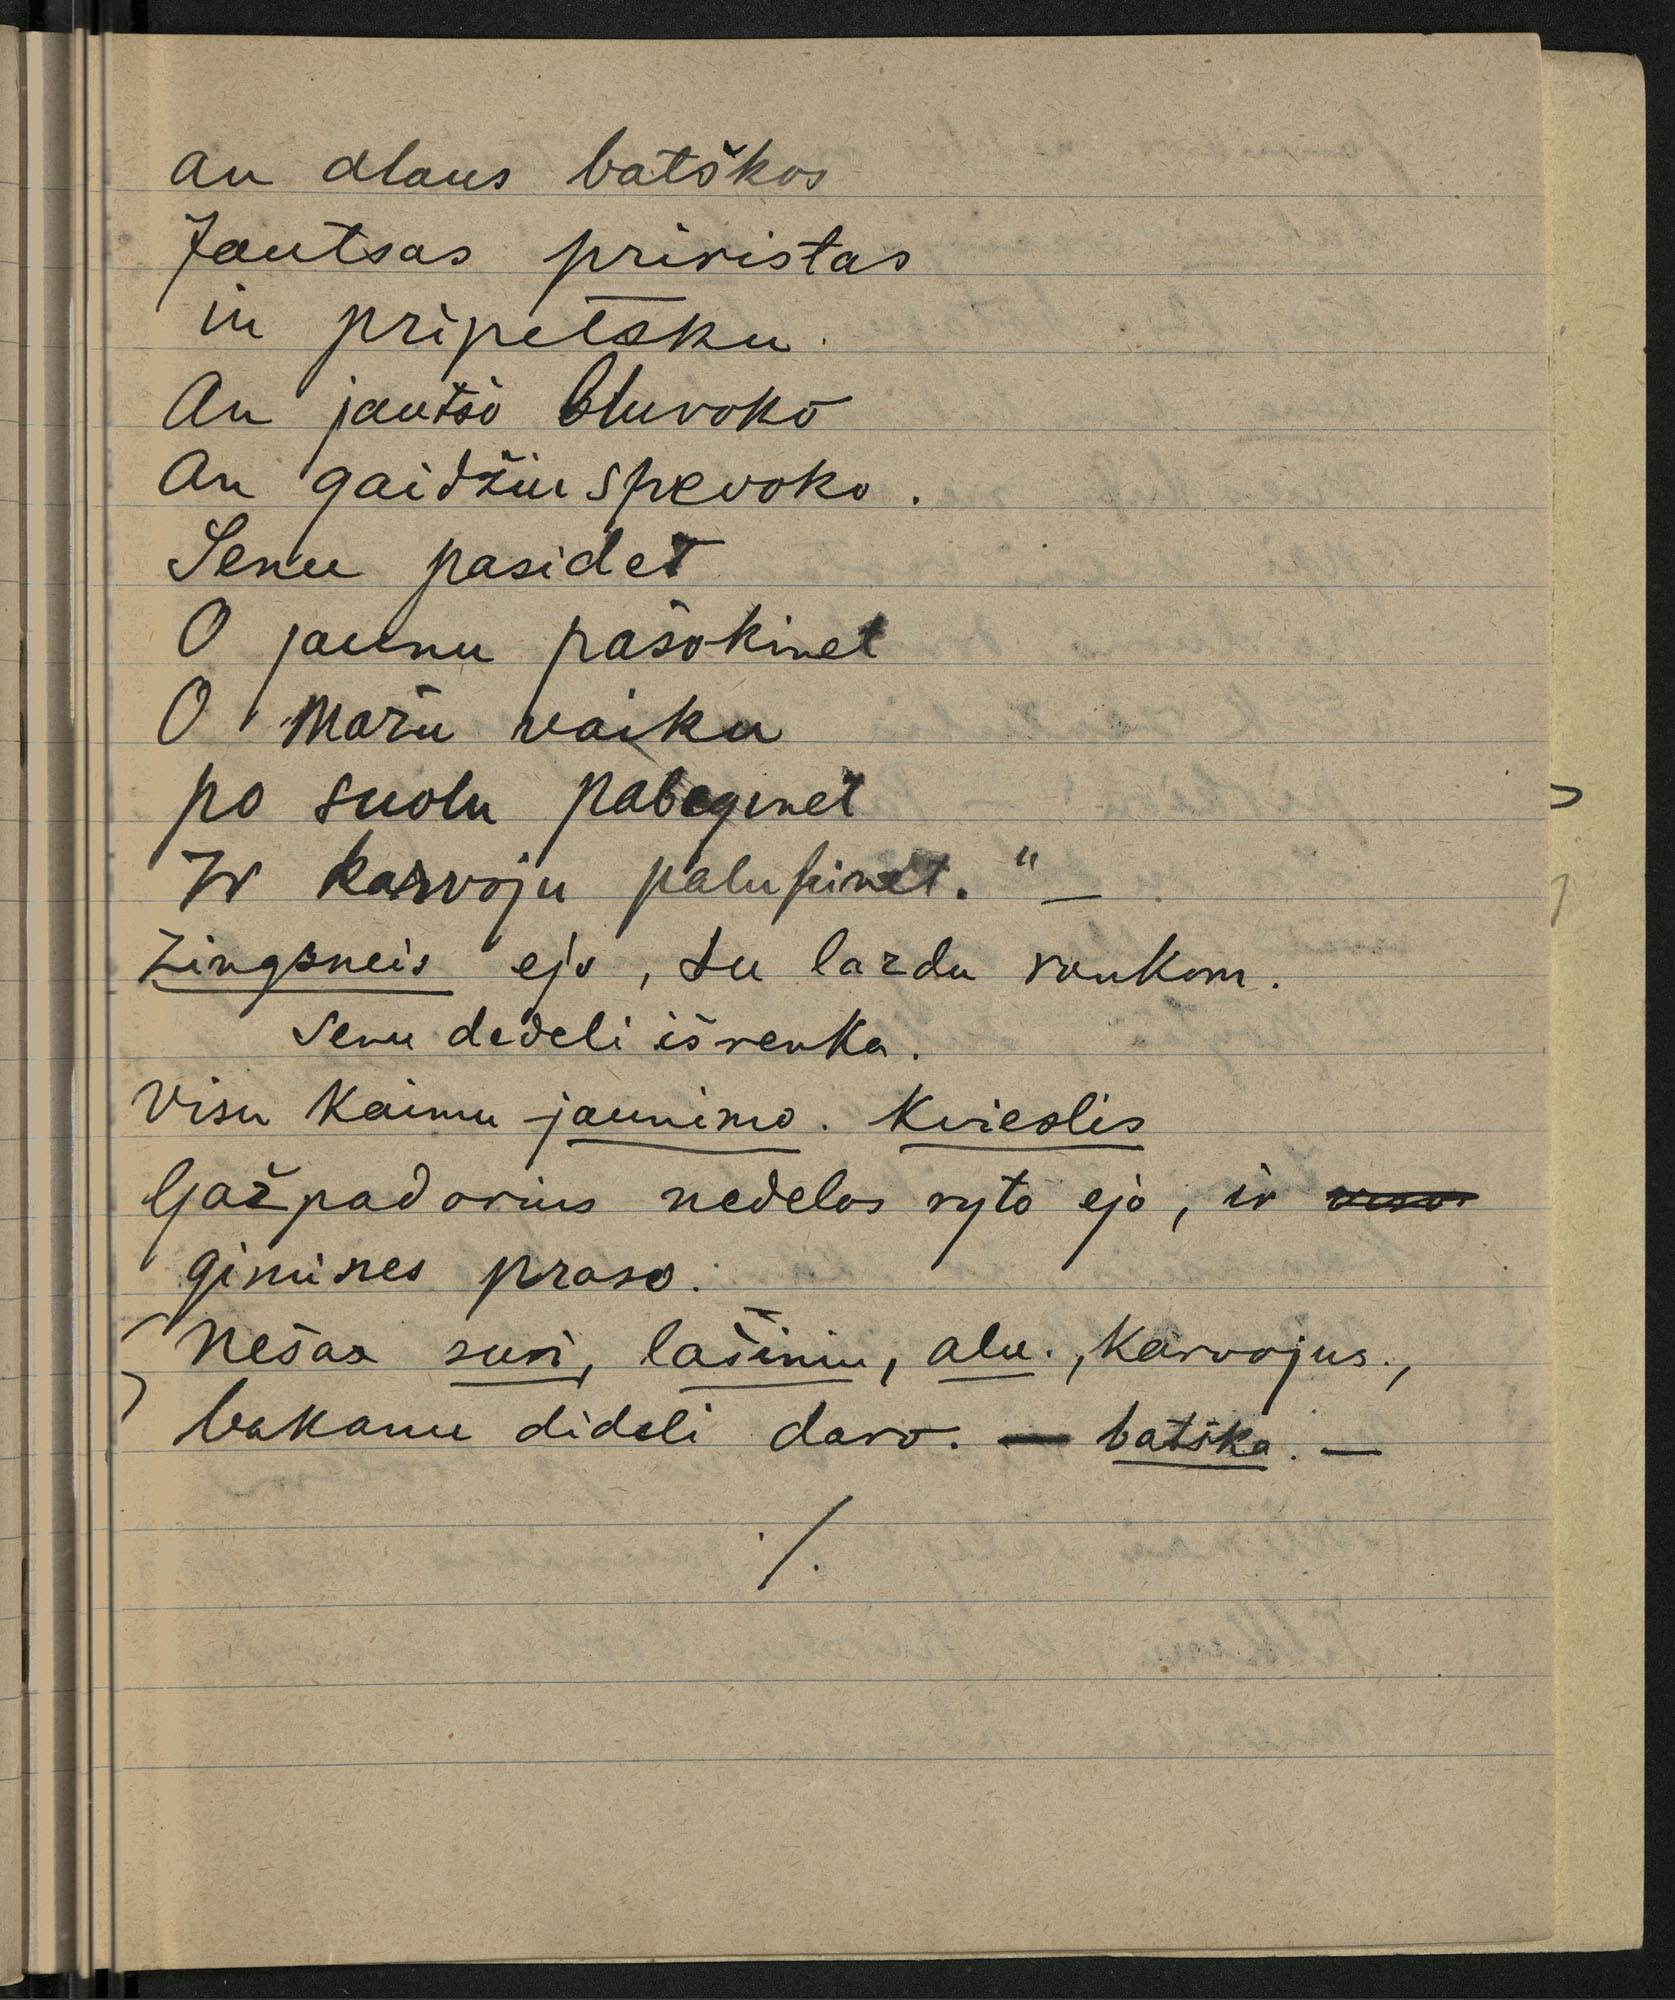 an alaus batškos
Jautsas priristas
in pripetsku.
An jautšo bluvoko
An gaidžiu spevoko.
Senu pasidet
O jaunu pašokinet
O mažu vaiku
po suolu pabeginet
Ir karvoju palupinet. " —
Zingsneis ejo, su lazdu rankom.
Senu dedeli išrenka.
Visu kaimu jaunimo. Kvieslis
Gažpadorius nedelos ryto ejo, ir
gimines praso.
Nešas suri, lašiniu, alu., Karvojus.,
bakanu dideli daro. — batška. —
./.